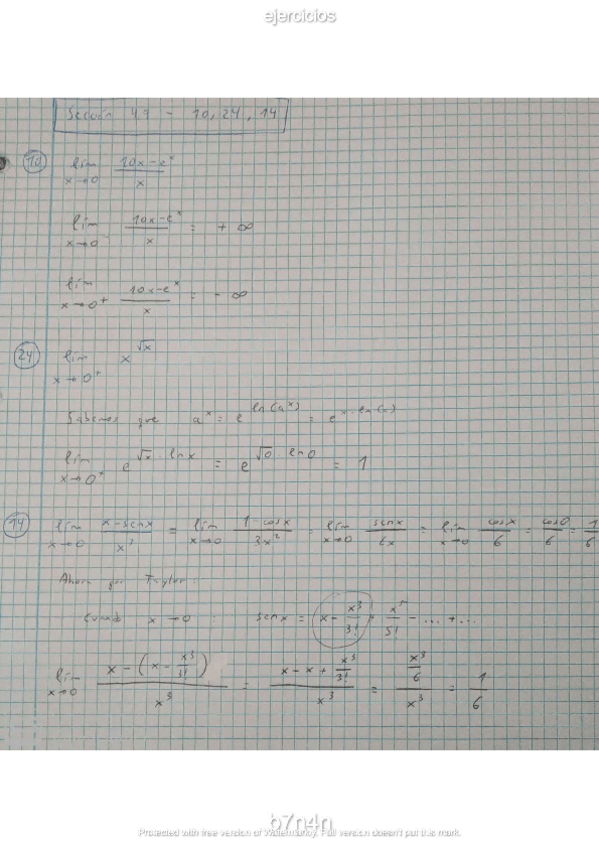 ejercicios
Sección 4.7 - 10, 24, 14
10 lim x→0 (10x - e^x)/x
lim x→0⁻ (10x - e^x)/x = + ∞
lim x→0⁺ (10x - e^x)/x = - ∞
24 lim x→0⁺ x^√x
Sabemos que a^x = e^ln(a^x) = e^x·ln(a)
lim x→0⁺ e^√x · ln x = e^√0 · ln 0 = 1
14 lim x→0 (x - sen x)/x³ = lim x→0 (1 - cos x)/3x² = lim x→0 sen x/6x = lim x→0 cos x/6 = cos 0/6 = 1/6
Ahora por Taylor:
Cuando x → 0 : sen x = x - x³/3! + x⁵/5! - ... + ...
lim x→0 (x - (x - x³/3!))/x³ = (x - x + x³/3!)/x³ = (x³/6)/x³ = 1/6
b7n4n
Protected with free version of Watermarkly. Full version doesn't put this mark.